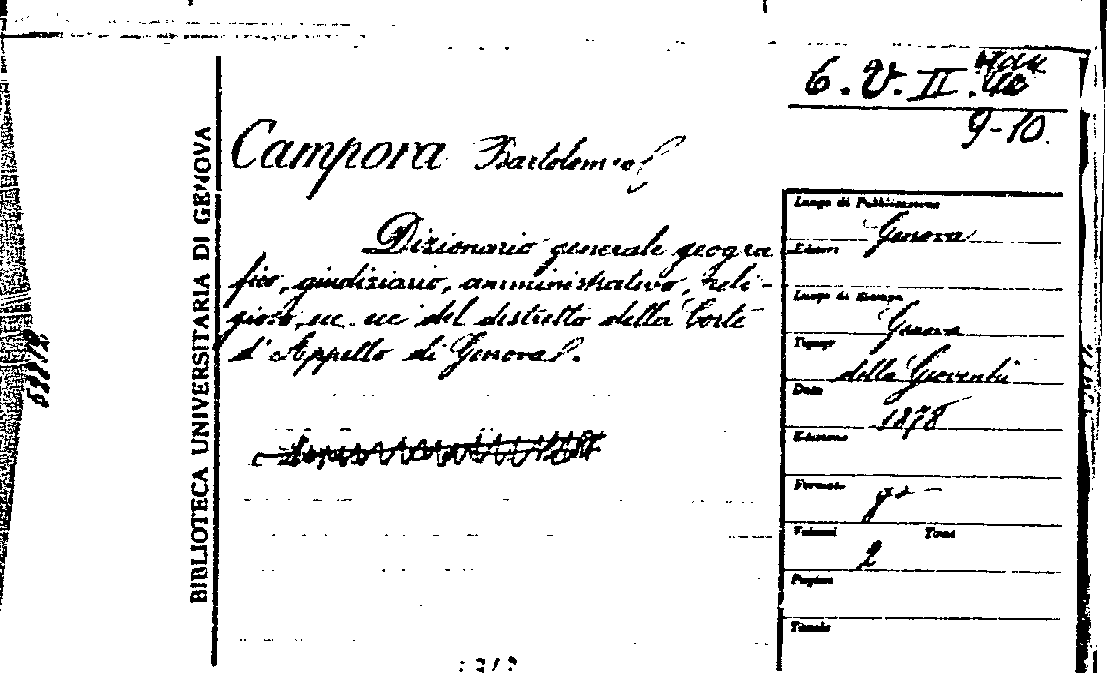 6.V.II.
9-10.
BIBLIOTECA UNIVERSITARIA DI GENOVA
Campora Bartolomeo
Dizionario generale geogra
fico, giudiziario, amministrativo, reli-
gioso, ec. ec. del distretto della Corte
d'Appello di Genova.
Luogo di Pubblicazione
Genova
Editore
Luogo di Stampa
Genova
Tipogr
della Gioventù
Data
1878
Edizione
Formato
Volumi 2 Tomo
Pagine
Tavole